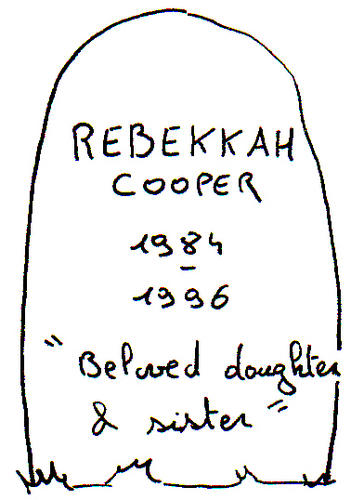 REBEKKAH
COOPER
1984
-
1996
" Beloved daughter
& sister "